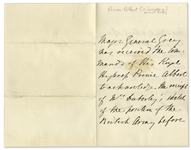 Major General Grey
has received the Com-
mands of His Royal
Highness Prince Albert
to acknowledge the receipt
of Mrs
of the position of the
British Army before